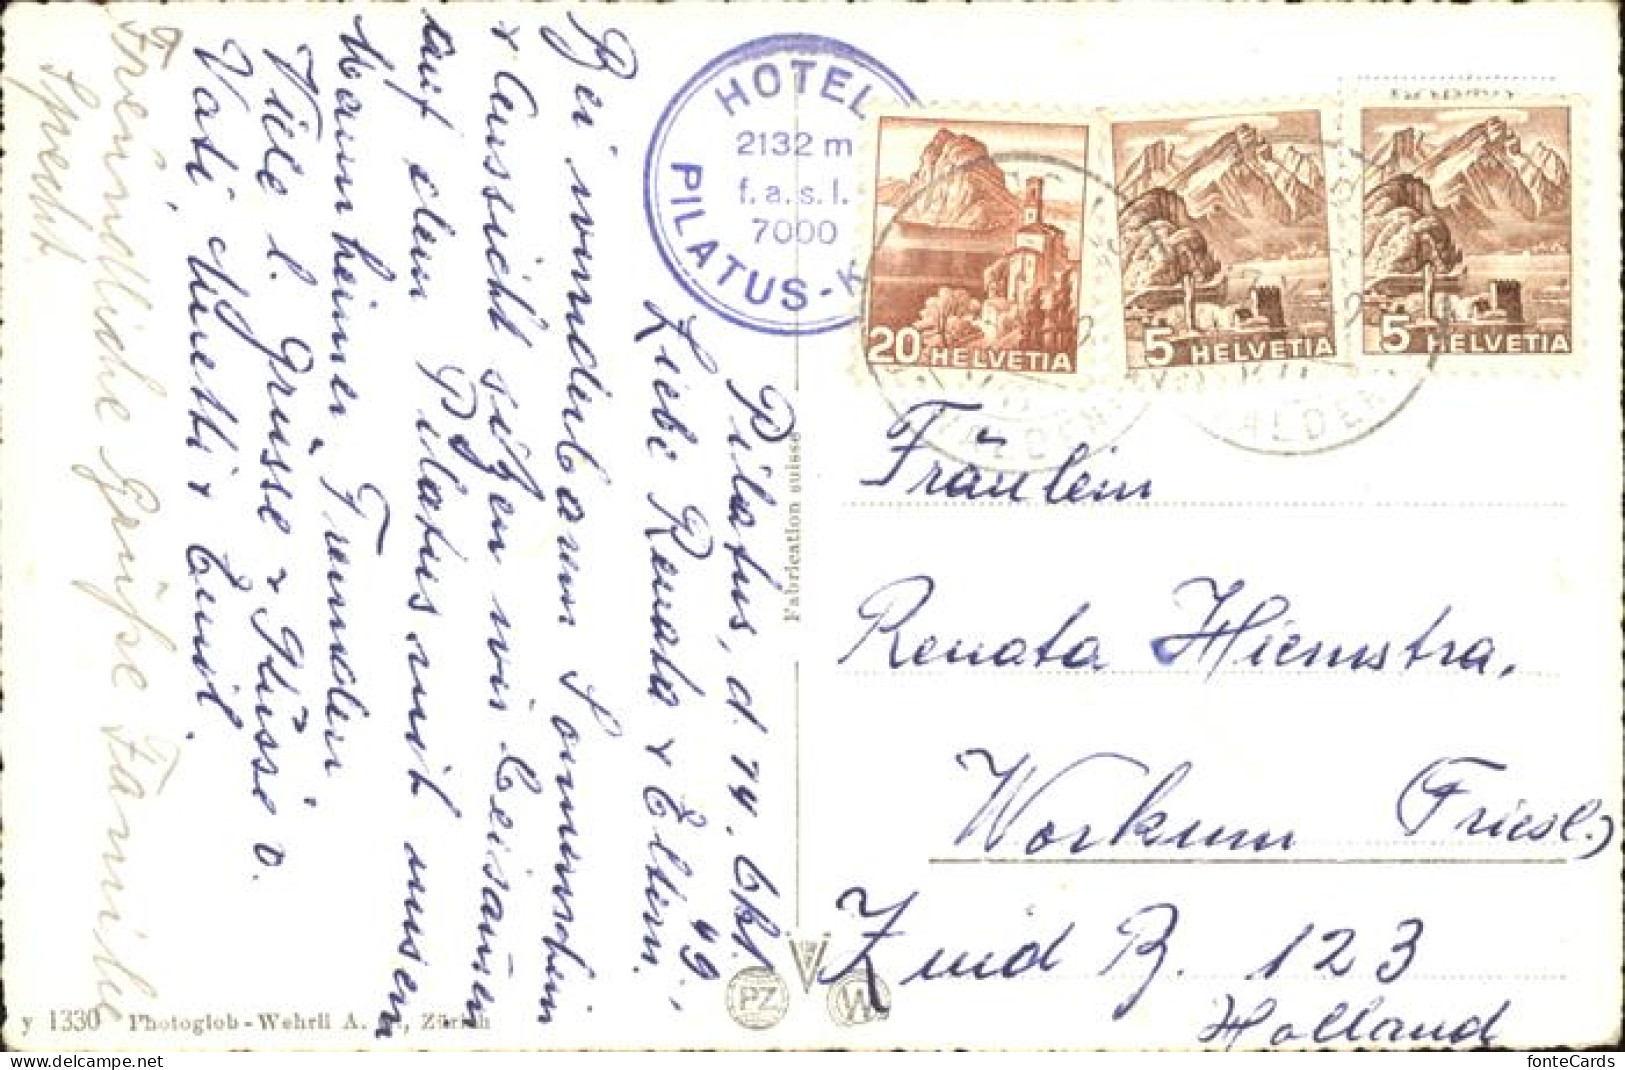 Pilatus, d. 14. Okt. 49.,
Liebe Renata & Eltern.
Bei wunderbarem Sonnenschein
& Aussicht sitzen wir beisamen
auf dem Pilatus mit unsern
Mannheimer Freunden
Viele l. Grüsse & Küsse v.
Vati, Muetti & Emil.
Freundliche Grüße Familie
Specht
HOTEL
2132 m
f. a. s. l.
7000
PILATUS-K
20 HELVETIA
5 HELVETIA
5 HELVETIA
WALDEN
WALDEN
Fräulein
Renata Hiemstra,
Workum (Friesl.)
Zuid B. 123
Holland
Fabrication suisse
PZ
W
y 1330 Photoglob-Wehrli A. G., Zürich
fonteCards